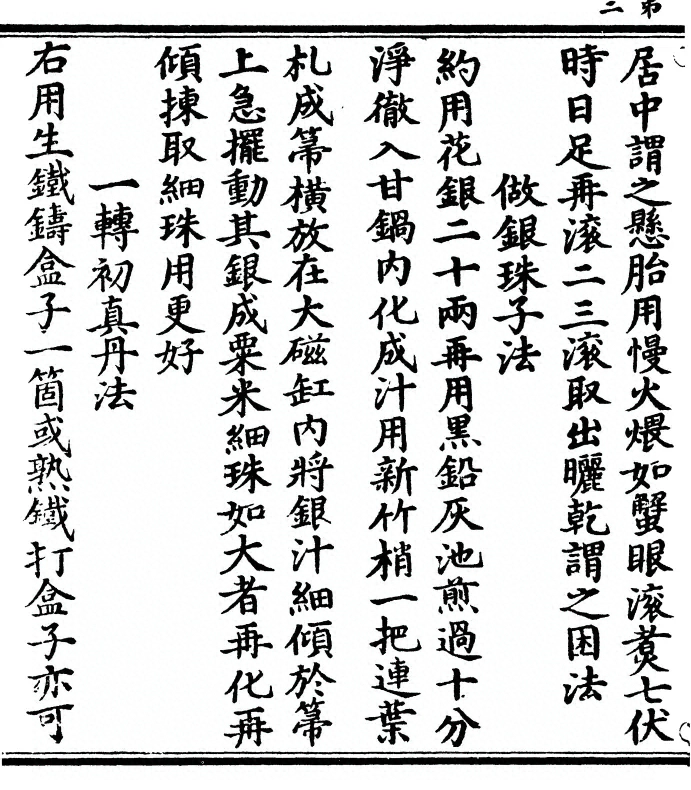 第二
居中謂之懸胎用慢火煨如蟹眼滾煑七伏
時日足再滾二三滾取出曬乾謂之困法
做銀珠子法
約用花銀二十兩再用黑鉛灰池煎過十分
淨徹入甘鍋內化成汁用新竹梢一把連葉
札成箒橫放在大磁缸內將銀汁細傾於箒
上急擺動其銀成粟米細珠如大者再化再
傾揀取細珠用更好
一轉初真丹法
右用生鐵鑄盒子一箇或熟鐵打盒子亦可